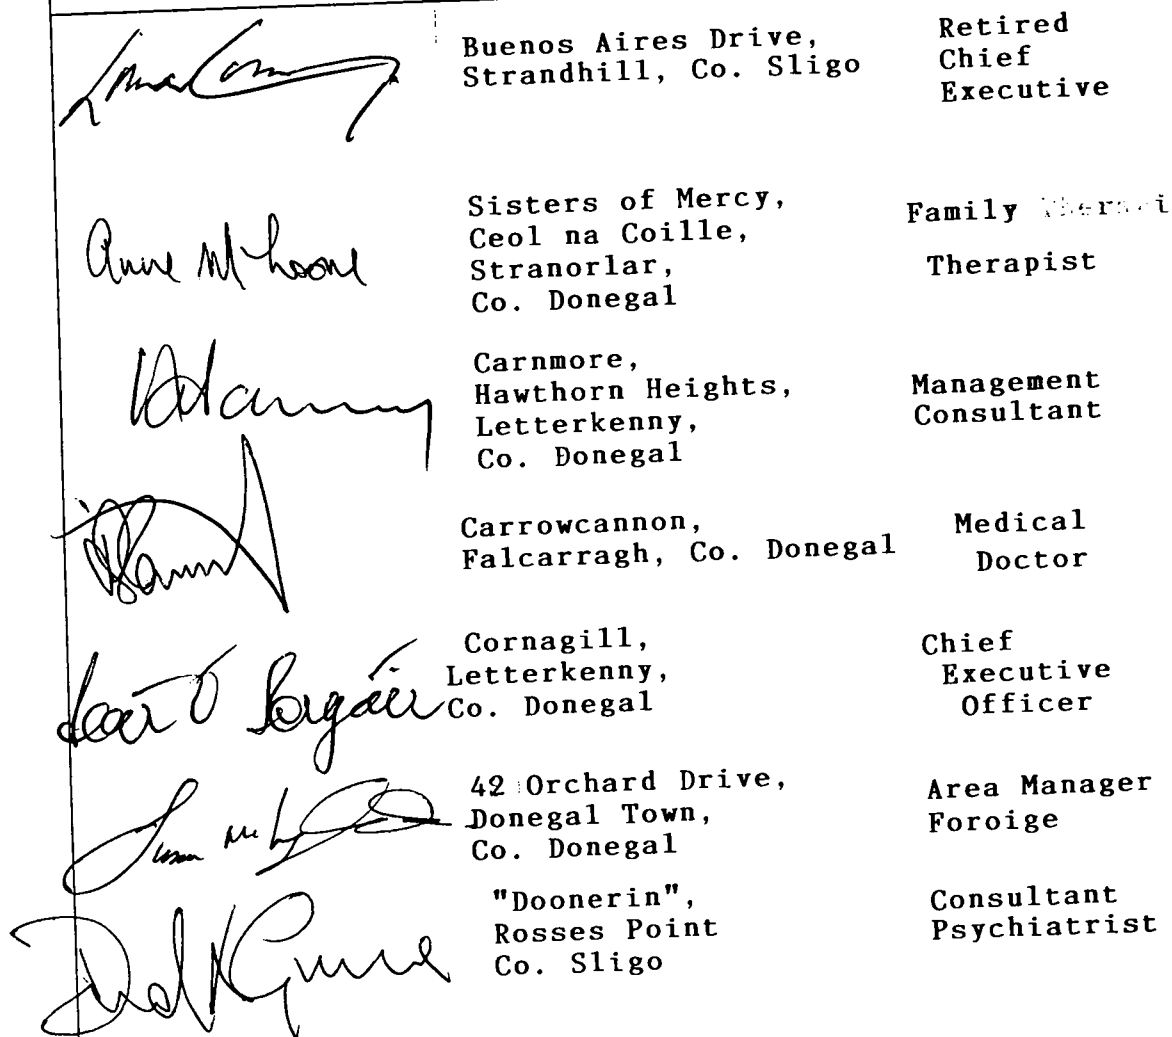 Buenos Aires Drive,
Strandhill, Co. Sligo
Retired
Chief
Executive
Anne
Sisters of Mercy,
Ceol na Coille,
Stranorlar,
Co. Donegal
Family
Therapist
Carnmore,
Hawthorn Heights,
Letterkenny,
Co. Donegal
Management
Consultant
Carrowcannon,
Falcarragh, Co. Donegal
Medical
Doctor
Cornagill,
Letterkenny,
Co. Donegal
Chief
Executive
Officer
42 Orchard Drive,
Donegal Town,
Co. Donegal
Area Manager
Foroige
"Doonerin",
Rosses Point
Co. Sligo
Consultant
Psychiatrist